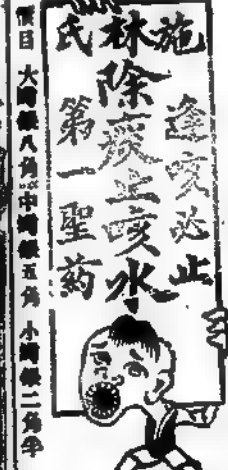 施林氏
逢咳必止
除痰止咳水
第一聖药
價目 大樽銀八角 中樽銀五角 小樽銀二角半